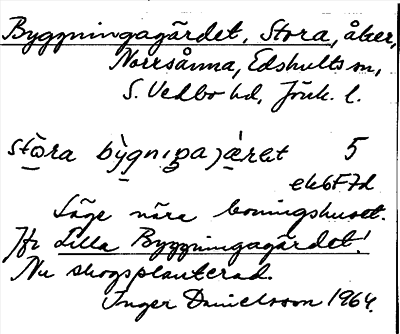 Byggningagärdet, Stora, åker,
Norrsånna, Edshults sn,
S. Vedbo hd, Jönk. l.
stòra bỳgnıŋajæ̀rət 5
ek6F7d
Läge nära boningshuset.
Jfr Lilla Byggningagärdet!
Nu skogsplanterad.
Inger Danielsson 1964.